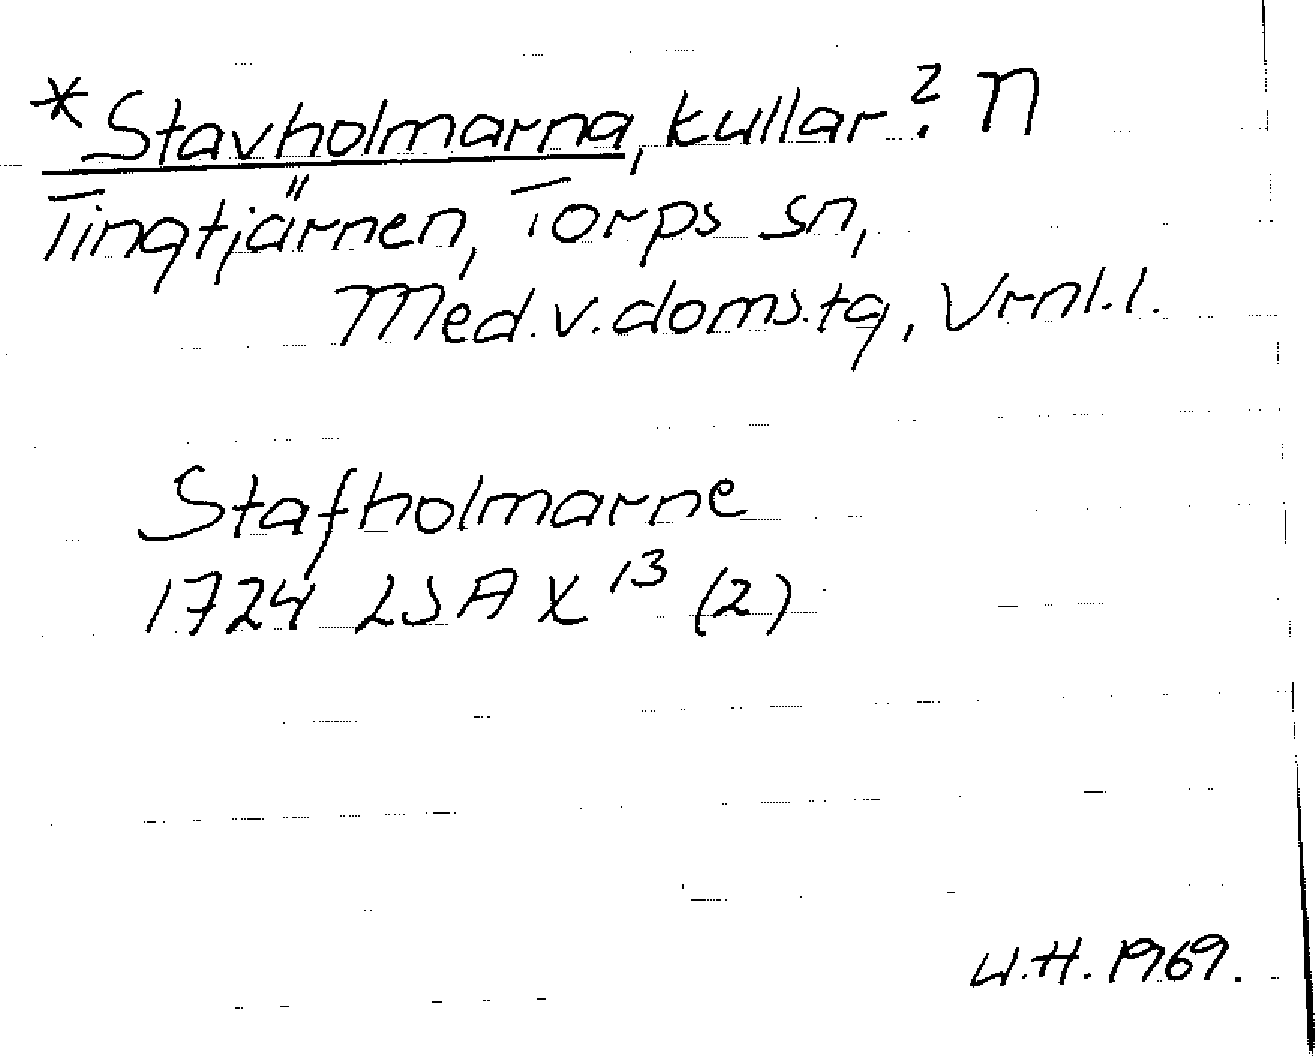 *Stavholmarna, kullar? N
Tingtjärnen, Torps sn,
Med.v.doms.tg, Vrnl.l.
Stafholmarne
1724 LSA X 13 (2)
U.H. 1969.